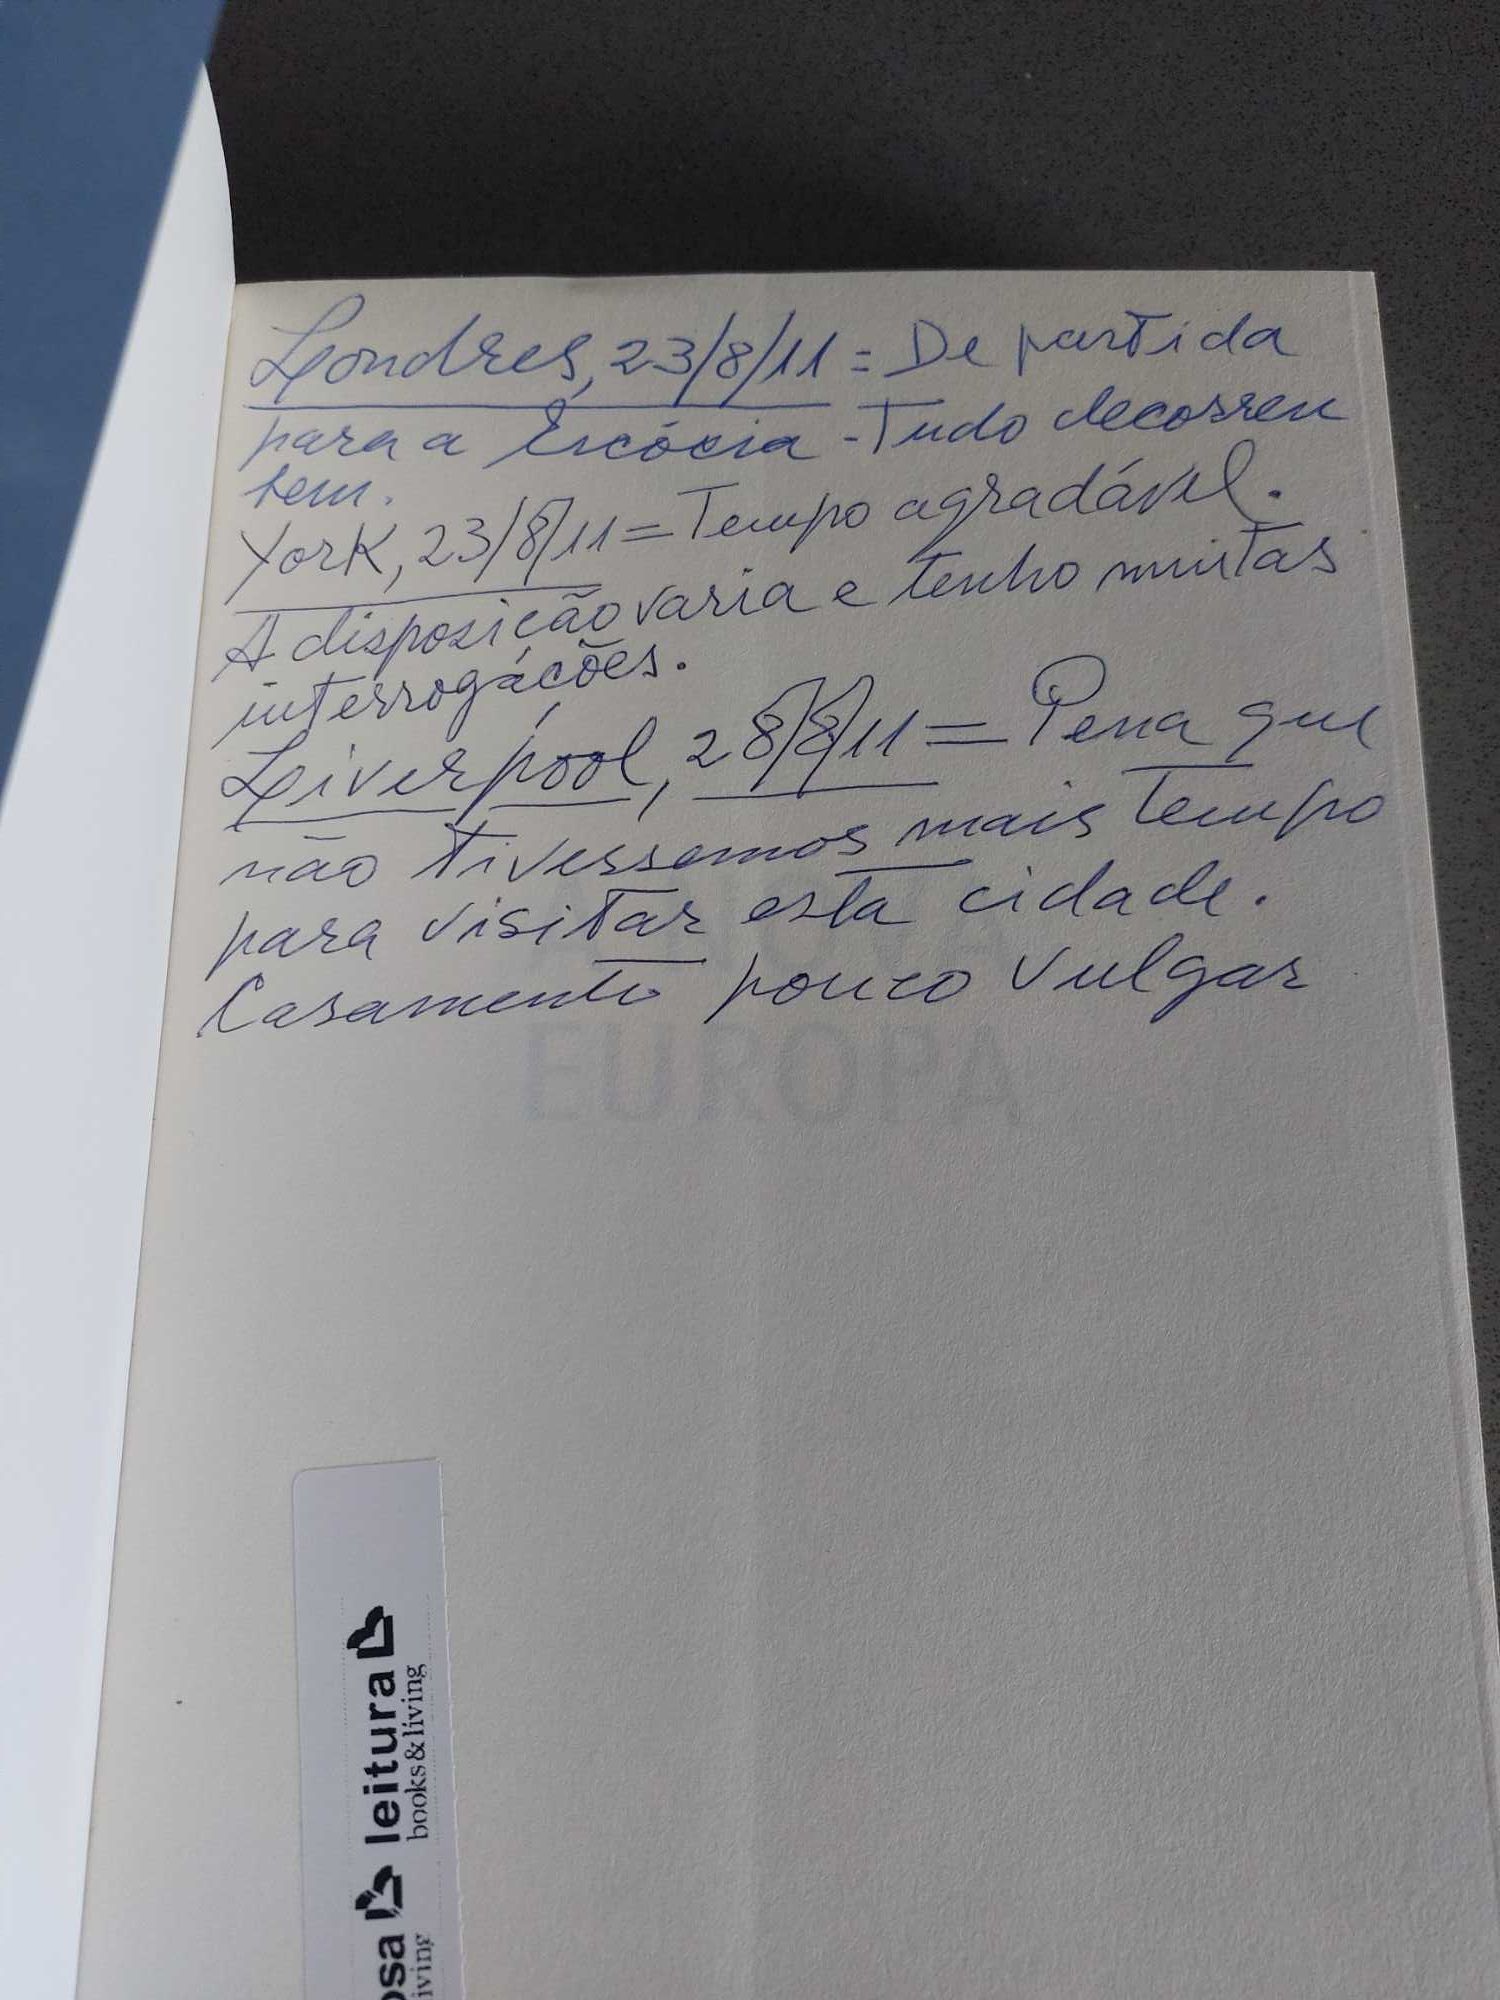 Londres, 23/8/11 = De partida
para a Escócia - Tudo decorreu
bem.
York, 23/8/11 = Tempo agradável.
A disposição varia e tenho muitas
interrogações.
Liverpool, 28/8/11 = Pena que
não tivessemos mais tempo
para visitar esta cidade.
Casamento pouco vulgar
EUROPA
leitura
books & living
osa
iving